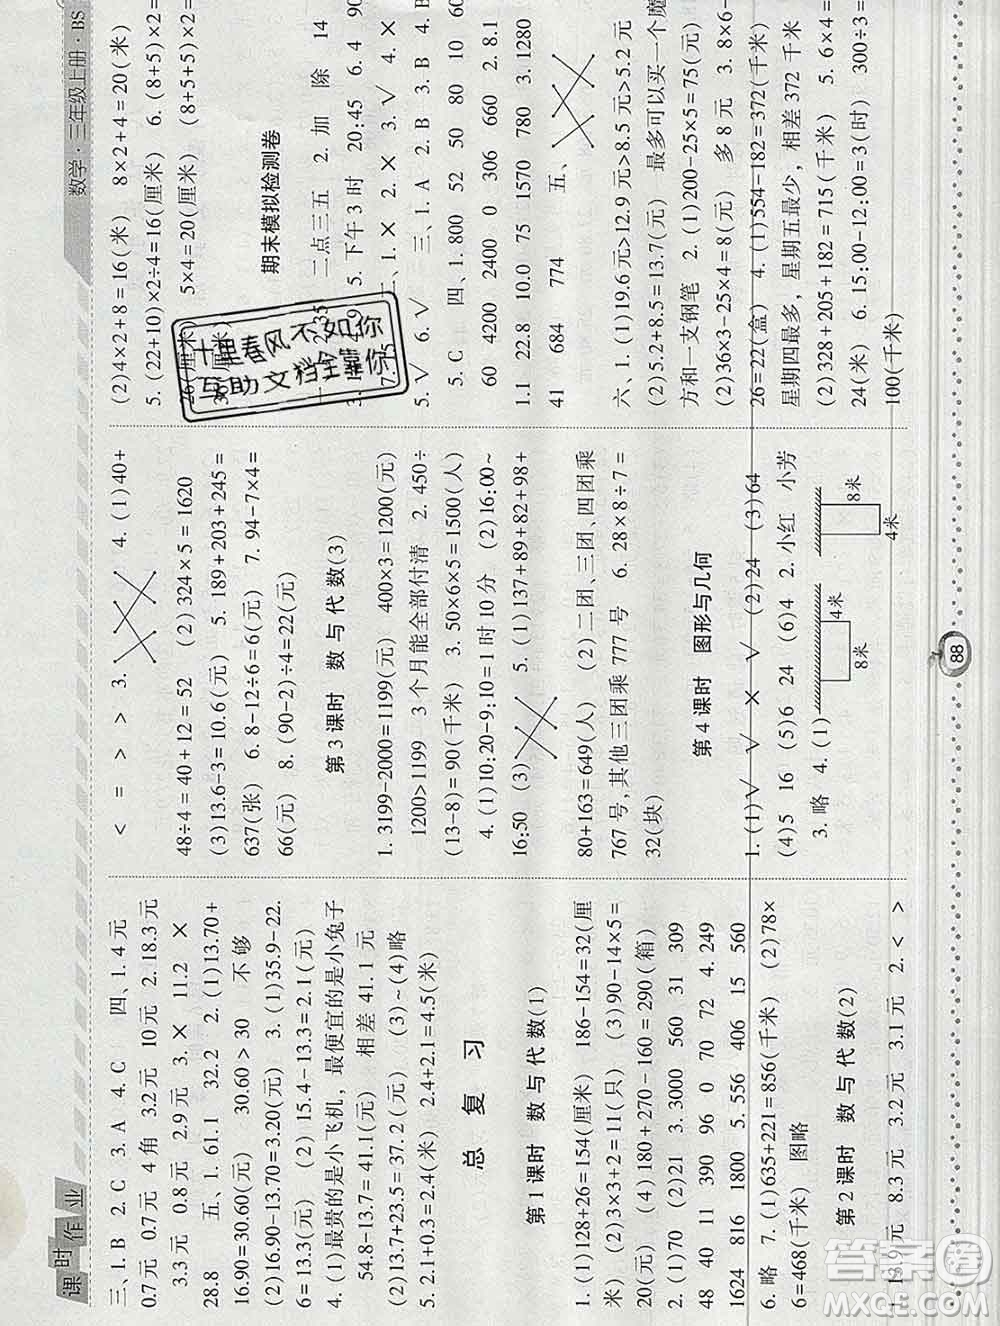 课时作业
数学·三年级上册·BS
三、1. B 2. C 3. A 4. C 四、1. 4元
0.7元 0.7元 4角 3.2元 10元 2. 18.3元
3.3元 0.8元 2.9元 3. × 11.2 ×
28.8 五、1. 61.1 32.2 2. (1)13.70+
16.90=30.60(元) 30.60＞30 不够
(2)16.90-13.70=3.20(元) 3. (1)35.9-22.
6=13.3(元) (2)15.4-13.3=2.1(元)
4. (1)最贵的是小飞机，最便宜的是小兔子
54.8-13.7=41.1(元) 相差41.1元
(2)13.7+23.5=37.2(元) (3)~(4)略
5. 2.1+0.3=2.4(米) 2.4+2.1=4.5(米)
总复习
第1课时 数与代数(1)
1. (1)128+26=154(厘米) 186-154=32(厘
米) (2)3×3+2=11(只) (3)90-14×5=
20(元) (4)180+270-160=290(箱)
2. (1)70 (2)21 3. 3000 560 31 309
48 40 11 390 96 0 70 72 4. 249
1624 816 1800 5. 556 406 15 560
6. 略 7. (1)635+221=856(千米) (2)78×
6=468(千米) 图略
第2课时 数与代数(2)
1. 13.9元 8.3元 3.2元 3.1元 2. ＜ ＞
＜ = ＞ ＞ 3. 4. (1)40+
48÷4=40+12=52 (2)324×5=1620
(3)13.6-3=10.6(元) 5. 189+203+245=
637(张) 6. 8-12÷6=6(元) 7. 94-7×4=
66(元) 8. (90-2)÷4=22(元)
第3课时 数与代数(3)
1. 3199-2000=1199(元) 400×3=1200(元)
1200＞1199 3个月能全部付清 2. 450÷
(13-8)=90(千米) 3. 50×6×5=1500(人)
4. (1)10:20-9:10=1时10分 (2)16:00~
16:50 (3) 5. (1)137+89+82+98+
80+163=649(人) (2)二团、三团、四团乘
767号，其他三团乘777号 6. 28×8÷7=
32(块)
第4课时 图形与几何
1. (1)√ √ × √ (2)24 (3)64
(4)5 16 (5)6 24 (6)4 2. 小红 小芳
3. 略 4. (1)
8米
4米
8米
4米
(2)4×2+8=16(米) 8×2+4=20(米)
5. (22+10)×2÷4=16(厘米) 6. (8+5)×2=
26(厘米) 5×4=20(厘米) (8+5+5)×2=
36(厘米)
期末模拟检测卷
二点三五 2. 加 除 14
5. 下午3时 20:45 6. 4 90
1. × 2. × 3. √ 4. ×
5. √ 6. √ 三、1. A 2. B 3. B 4. B
5. C 四、1. 800 52 50 80 10 60
60 4200 2400 0 306 660 2. 8.1
1.1 22.8 10.0 75 1570 780 3. 1280
41 684 774 五、
六、1. (1)19.6元＞12.9元＞8.5元＞5.2元
(2)5.2+8.5=13.7(元) 最多可以买一个魔
方和一支钢笔 2. (1)200-25×5=75(元)
(2)36×3-25×4=8(元) 多8元 3. 8×6-
26=22(盒) 4. (1)554-182=372(千米)
星期四最多，星期五最少，相差372千米
(2)328+205+182=715(千米) 5. 6×4=
24(米) 6. 15:00-12:00=3(时) 300÷3=
100(千米)
十里春风不如你
互助文档全靠你
88
答案圈
MXQE.COM